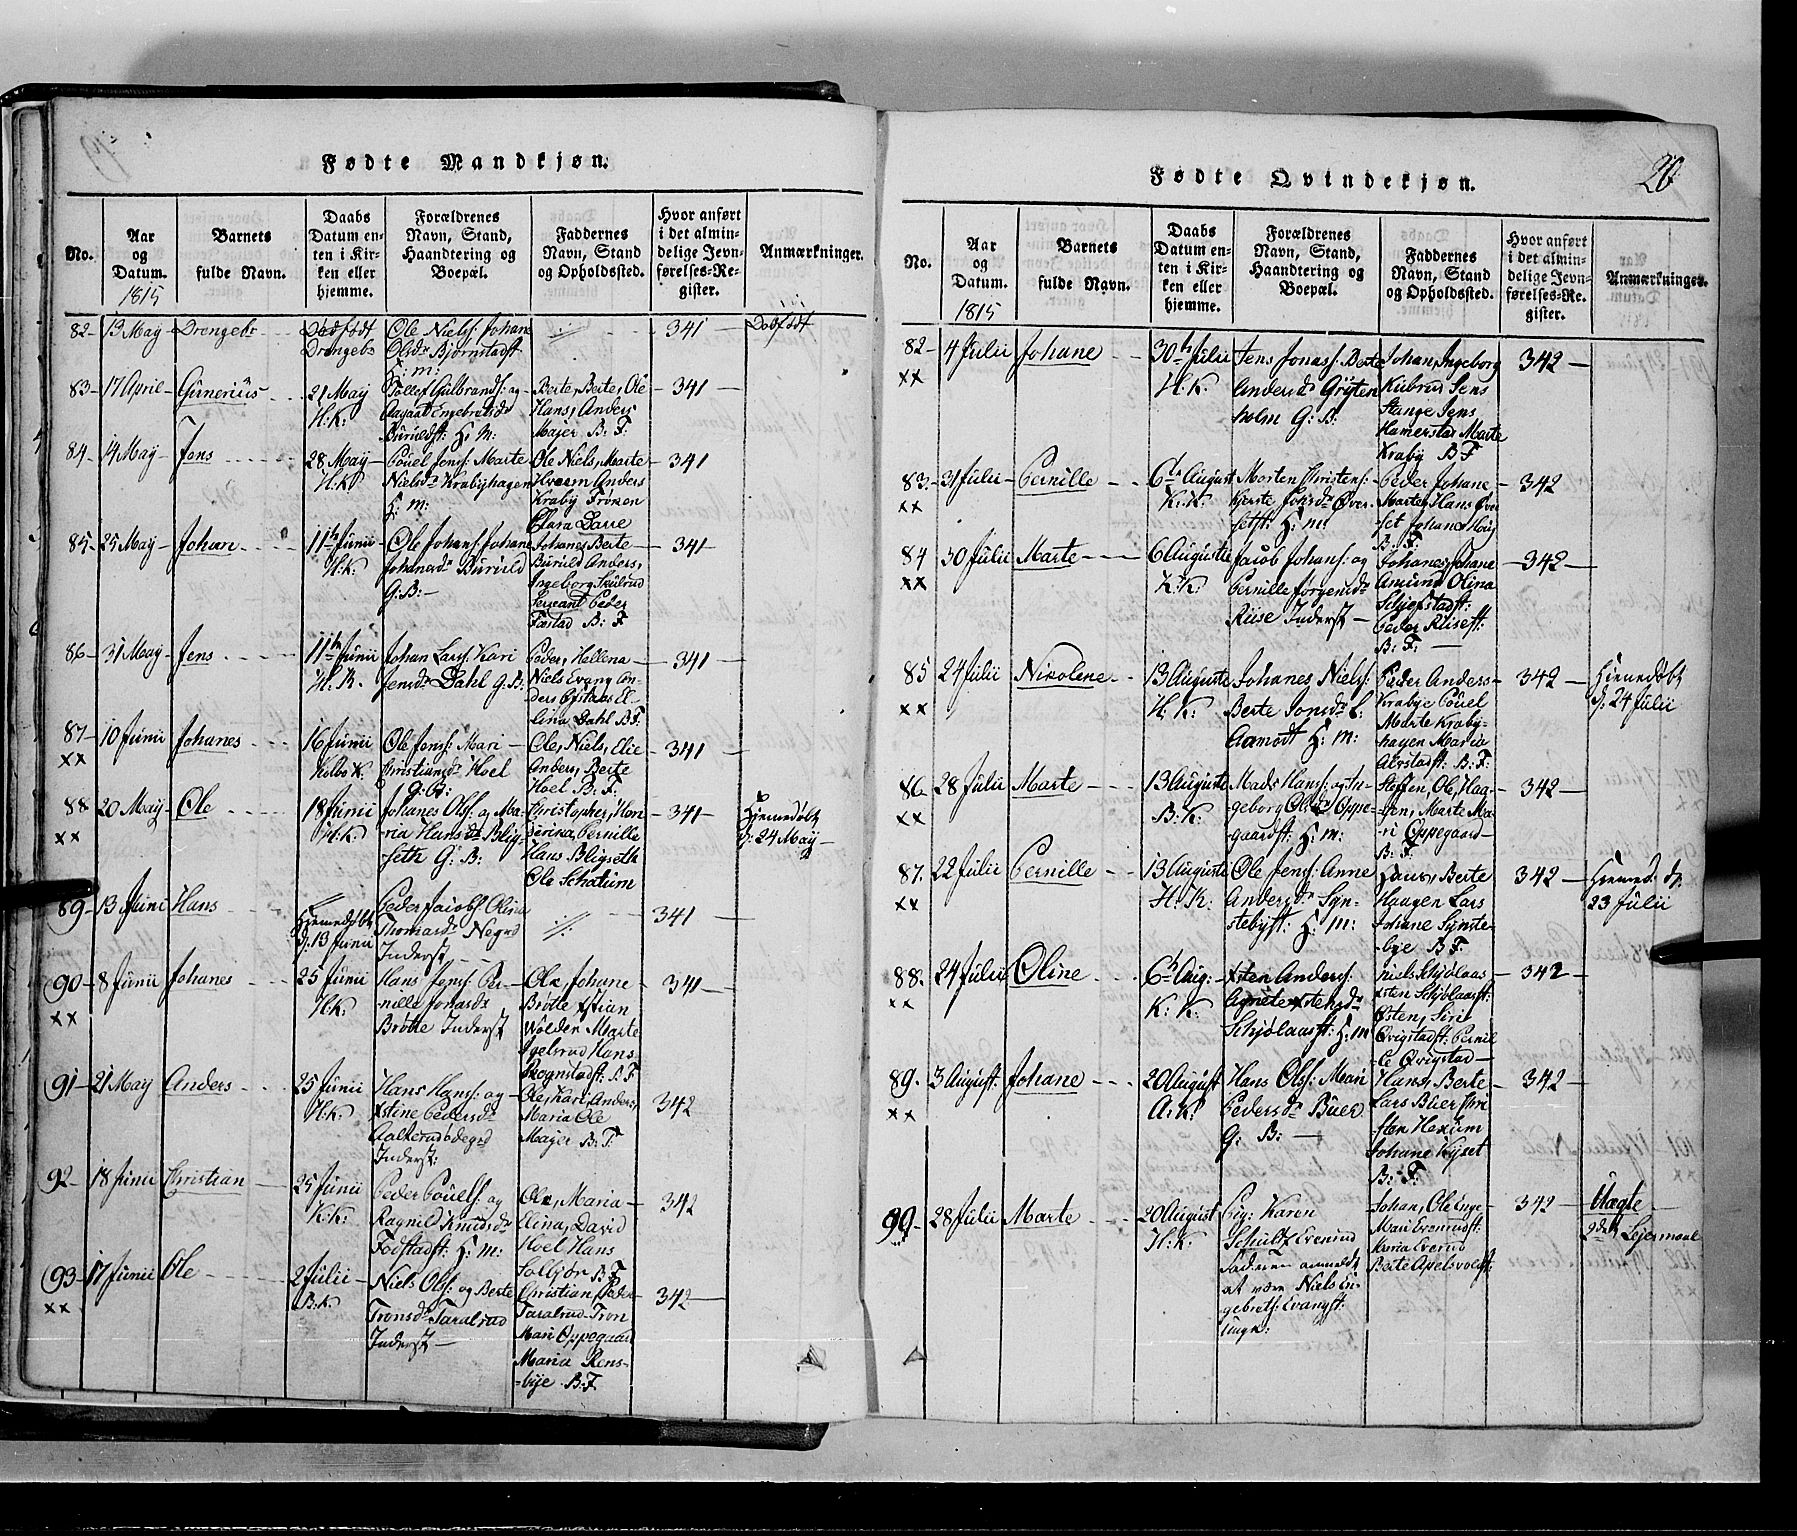 Fødte Mandkjøn.
No.
Aar
og
Datum.
1815
Barnets
fulde Navn.
Daabs
Datum en-
ten i Kir-
ken eller
hjemme.
Forældrenes
Navn, Stand,
Haandtering og
Boepæl.
Faddernes
Navn, Stand
og Opholdssted.
Hvor anført
i det almin-
delige Jevn-
førelses-Re-
gister.
Anmærkninger.
82- 13 May Drengeb:
Dødfødt
Drengeb:
Ole Niels: Johane
Olsd: Bjørnstadt
H: m:
341
Dødfødt
83- 17 April Gunerius
21 May
H:K:
Tollef Gulbrands: og
Aagaat Engebretsd:
Buruldst: H: M:
Berte, Berte, Ole
Hans, Anders
Majer B: F:
341
84- 14 May Jens
28 May
H:K:
Povel Jens: Marte
Nielsd: Krabyhagen
H: m:
Ole Niels, Marte
Hveem Anders
Kraby Frøken
Clara Daue
341
85- 25 May Johan
11th Junii
H:K:
Ole Johans: Johane
Johanesd: Buruld
G:B:
Johanes Berte
Buruld Anders,
Ingeborg Skulrud
Sergeant Peder
Fastad B: F
341
86- 31 May Jens
11th Junii
H.K.
Johan Lars: Kari
Jensd: Dahl G:B:
Peder, Hellena
Niels Evang
lina Dahl B:F:
341
87- 10 Junii Johanes
xx
16 Junii
Kolbo K.
Ole Jens: Mari
Christiansd: Hoel
G:B:
Ole, Niels, Elie
Anders, Berte
Hoel B: F.
341
88 20 May Ole
xx
18 Junii
H:K:
Johanes Ols: og Ma-
ria Hansd: Blig-
seth G: B:
Christopher, Hen-
derika, Pernille
Hans Bligseth
Ole Schatum
341
Hiemedøbt
d: 24 May
89- 13 Juni Hans
Hiemedøbt
d: 13 Junii
Peder Jacobs: Olina
Thomasd: Negrd
Inderst
341
90- 8 Junii Johanes
xx
25 Junii
H.K:
Hans Jens: Per-
nille Jonasd:
Brøtte Inderst
Ole, Johane
Brøtte xstian
Wolden Marte
Igelsrud Hans
Skognstadst: B F
341
91- 21 May Anders
25 Junii
H.K:
Hans Hans: og
xstine Pedersd:
Aalterudødegrd
Inderst:
Ole, Kari, Anders,
Maria Ole
Majer B: F:
342
92- 18 Junii Christian
25 Junii
K:K:
Peder Povels: og
Ragnild Knudsd:
Fodstadst: H: M:
Ole, Maria
Elina, David
Hoel Hans
Solbjør B F
342
93- 17 Junii Ole
xx
2 Julii
B:K:
Niels Ols: og Berte
Tronsd: Taralrud
Inderst
Christian Peder
Taralrud Tron
Mari Oppegaard
Maria Rens-
bye B:F
342
Fødte Qvindekjøn.
20
No.
Aar
og
Datum.
1815
Barnets
fulde Navn.
Daabs
Datum en-
ten i Kir-
ken eller
hjemme.
Forældrenes
Navn, Stand,
Haandtering og
Boepæl.
Faddernes
Navn, Stand
og Opholdssted.
Hvor anført
i det almin-
delige Jevn-
førelses-Re-
gister.
Anmærkninger.
82- 4 Julii Johane
xx
30th Julii
H.K:
Jens Jonas: Berte
Andersd: Grøten-
holm G: B:
Johan, Ingeborg
Kubrud Jens
Stange Jens
Hamerstad Marte
Kraby B F
342
83- 31 Julii Pernille
xx
6th August
K:K:
Morten Christens:
Kjerste Jonsd: Øver-
setst: H: m:
Peder Johane
Marte, Hans Øver
set Johane Houg
B: F:
342
84 30 Julii Marte
xx
6 Auguste
K:K:
Jacob Johans: og
Pernille Jørgensd:
Riise Inderst
Johanes, Johane
Amund Olina
Schjefstadst:
Peder Riisest:
B: F:
342
85 24 Julii Nikolene
xx
13 Auguste
H.K:
Johanes Niels:
Berte Jonsd:
Aamodt H: M:
Peder Anders
Krabye Povel
Marte Kraby-
hagen Maria
Alestadst: B: F:
342
Hiemedøbt
d: 24 Julii
86. 28 Julii Marte
xx
13 Auguste
B:K:
Mads Hans: og In-
geborg Olsd: Oppe-
gaardst: H: m:
Steffen, Ole, Haa-
gen, Marte Ma-
ri Oppegaard
B: F:
342
87. 22 Julii Pernille
xx
13 Auguste
H.K:
Ole Jens: Anne
Andersd: Syn-
stebyst: H: M:
Hans, Berte
Haagen Lars
Johane Synste-
bye B F.
342
Hiemed: d:
23 Julii
88. 24 Julii Oline
xx
6th Aug:
K: K:
xsten Anders:
Agnete xstensd:
Schjølaasst: H: m
Niels Schjølaas
xsten Schjølaasst:
Østen, Siri
Qvigstadst: Pernil-
le Qvigstad
342
89. 3 August: Johane
xx
20 August
A:K:
Hans Ols: Mari
Pedersd: Büer
G: B:
Hans, Berte
Lars Büer Chri-
sten Hexum
Johane Kyset
B: F:
342
90- 28 Julii Marte
20 August
H:K:
Pig: Karen
Schultz Evenrud
Faderen anmeldt
at være Niels En-
gebrets: Evangst:
Ungk:
Johan, Ole Enge
Mari Evenrudst:
Maria Evenrud
Berte Apelsvoldst:
342
Uægte
2det Lejermaal